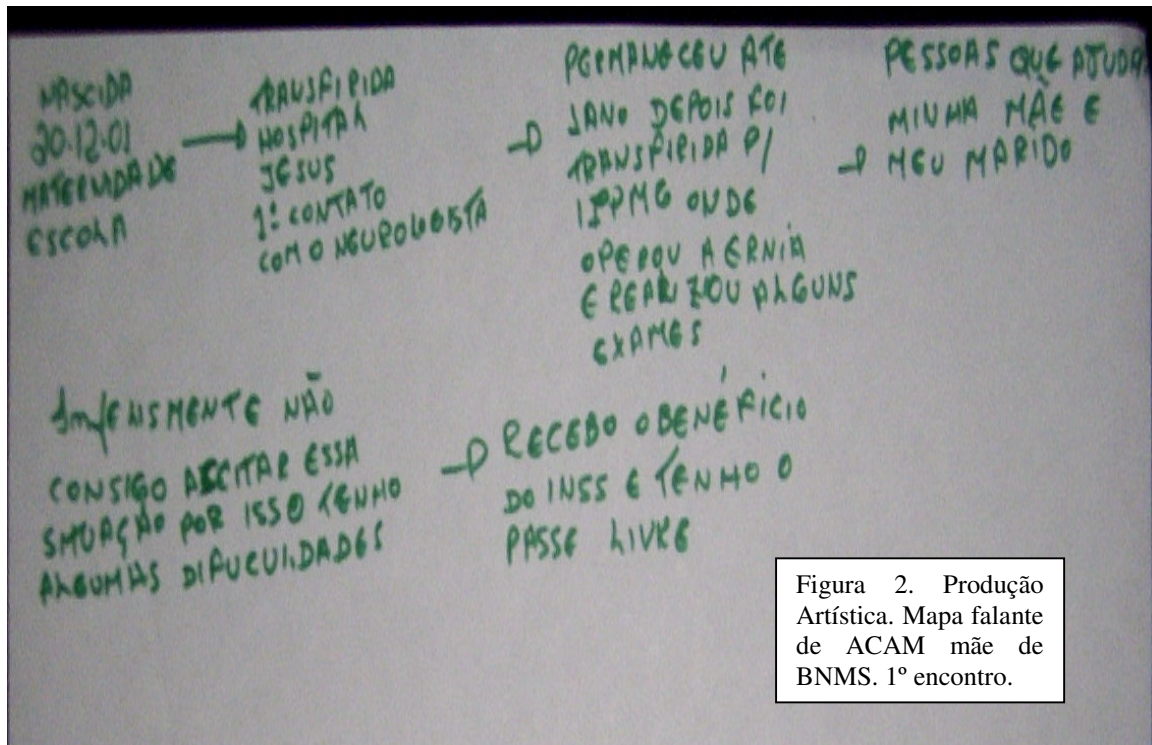 NASCIDA
20.12.01
MATERNIDADE
ESCOLA
TRANSFIRIDA
HOSPITAL
JESUS
1º CONTATO
COM O NEUROLOGISTA
PERMANECEU ATE
1ANO DEPOIS FOI
TRANSFIRIDA P/
IPPMG ONDE
OPEROU A ERNIA
E REALIZOU ALGUNS
EXAMES
PESSOAS QUE AJUDA
MINHA MÃE E
MEU MARIDO
NÃO
CONSIGO ACEITAR ESSA
SITUAÇÃO POR ISSO TENHO
ALGUMAS DIFUCULDADES
RECEBO O BENÉFICIO
DO INSS E TENHO O
PASSE LIVRE
Figura 2. Produção
Artística. Mapa falante
de ACAM mãe de
BNMS. 1º encontro.